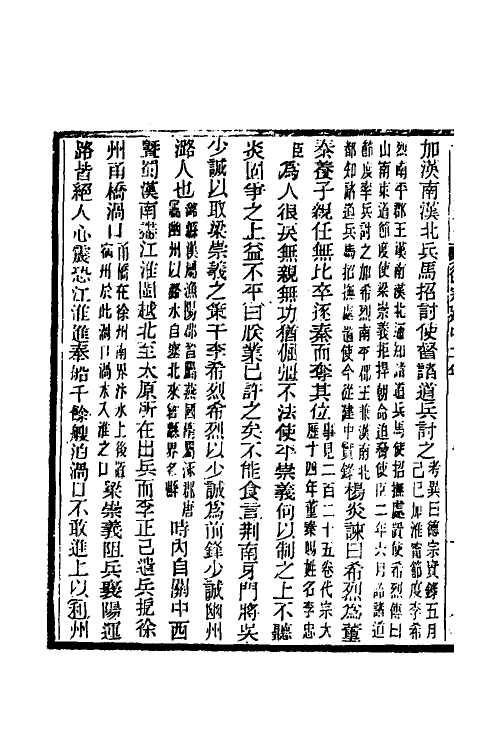 加漢南漢北兵馬招討使督諸道兵討之考異曰德宗實錄五月
己巳加淮甯節度李希
烈南平郡王漢南漢北通知諸道兵馬使招撫處置使希烈傳曰
山南東道節度使梁崇義拒捍朝命迫脅使臣二年六月詔諸道
節度率兵討之加希烈南平郡王兼漢南北
都知諸道兵馬招撫處置使今從建中實錄楊炎諫曰希烈爲董
秦養子親任無比卒逐秦而奪其位事見二百二十五卷代宗大
歷十四年董秦賜姓名李忠
臣爲人很戾無親無功猶倔彊不法使平崇義何以制之上不聽
炎固爭之上益不平曰朕業已許之矣不能食言荆南牙門將吳
少誠以取梁崇義之策干李希烈希烈以少誠爲前鋒少誠幽州
潞人也潞縣漢屬漁陽郡
屬幽州以潞水自塞北來爲縣界名時內自關中西
暨蜀漢南盡江淮閩越北至太原所在出兵而李正己遣兵扼徐
州甬橋渦口甬橋在徐州南界汴水上後置
宿州於此渦口渦水入淮之口梁崇義阻兵襄陽運
路皆絕人心震恐江淮進奉船千餘艘泊渦口不敢進上以和州